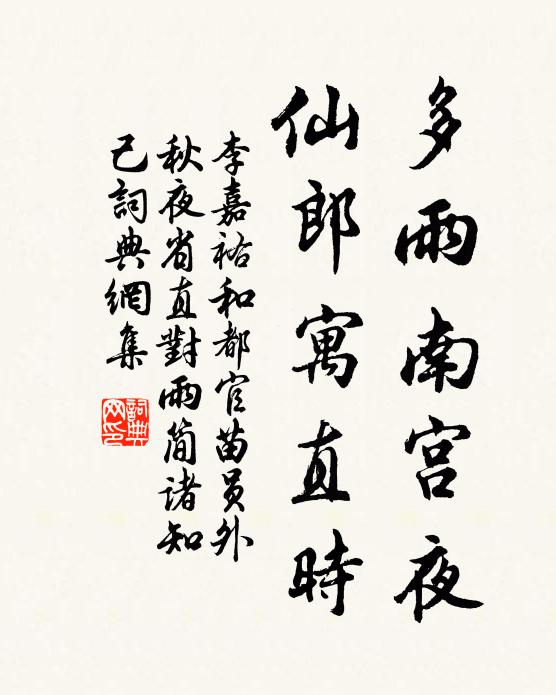 多雨南宫夜
仙郎寓直時
李嘉祐和都官苗員外
秋夜省直對雨简诸知
己詞典網集
詞典
网印